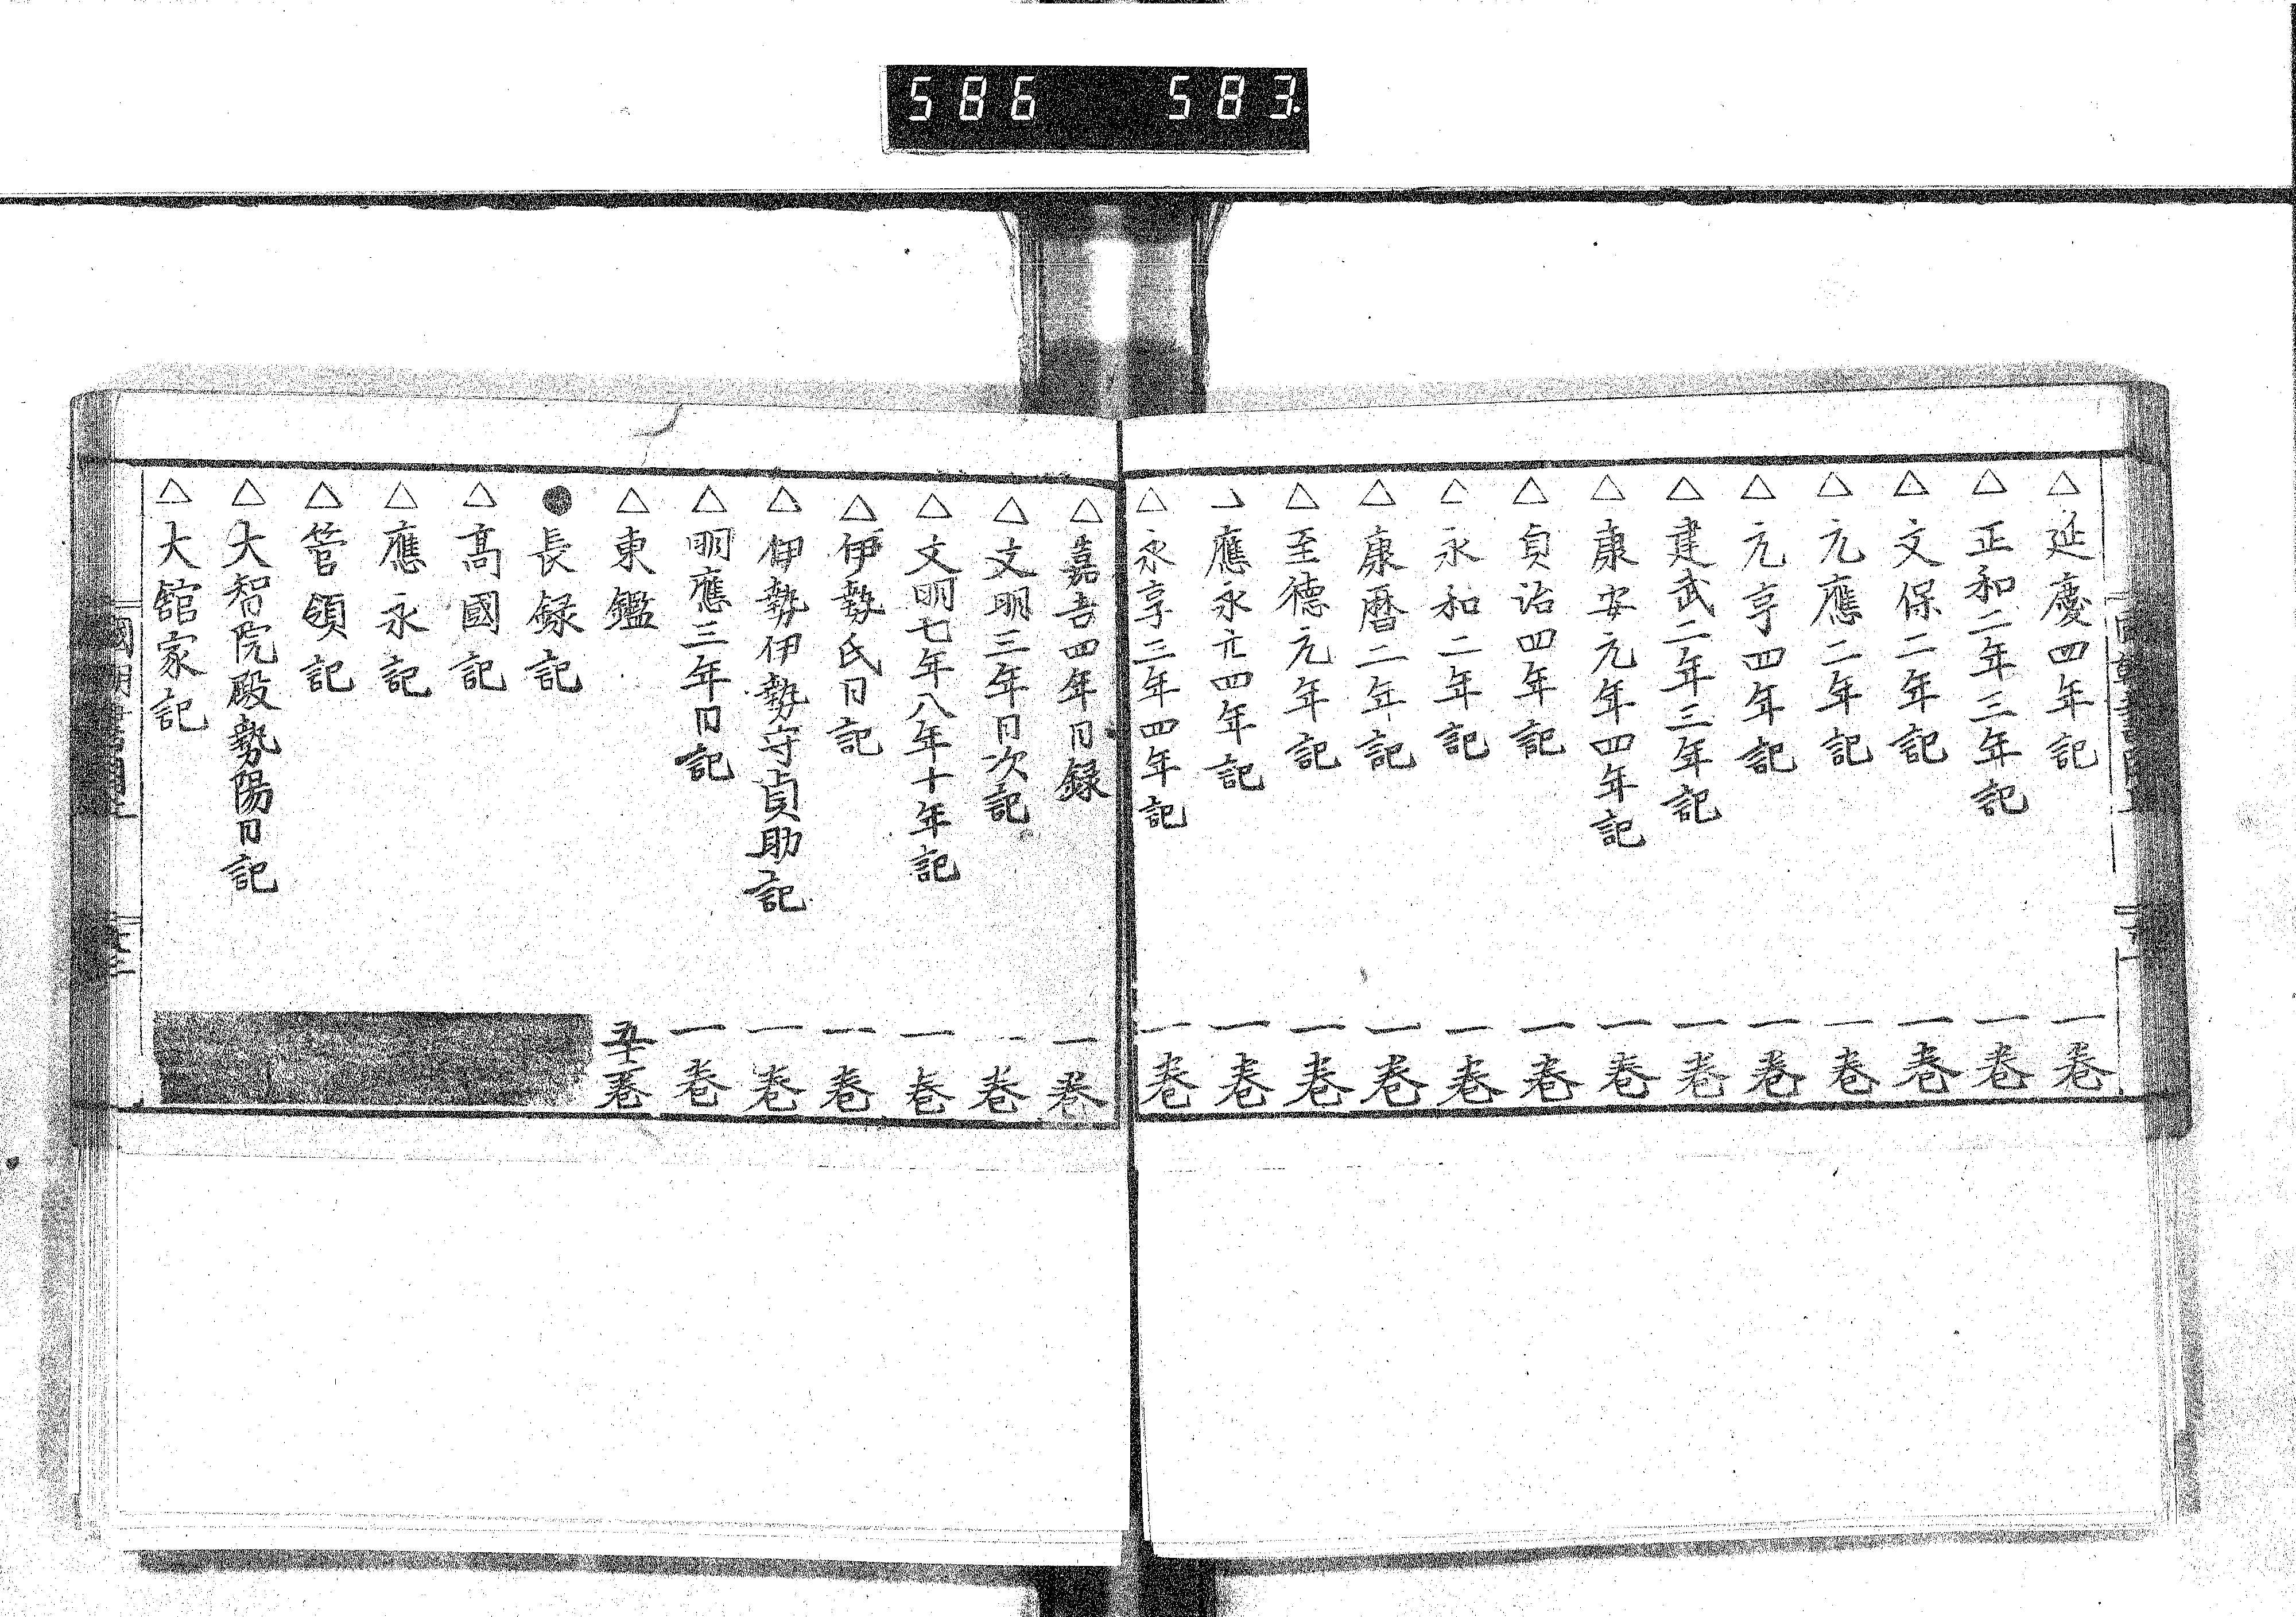 586 583.
△延慶四年記 一巻
△正和二年三年記 一巻
△文保二年記 一巻
△元應二年記 一巻
△元亨四年記 一巻
△建武二年三年記 一巻
△康安元年四年記 一巻
△貞治四年記 一巻
△永和二年記 一巻
△康暦二年記 一巻
△至德元年記 一巻
應永元四年記 一巻
△永享三年四年記 一巻
△嘉吉四年日録 一巻
△文明三年日次記 一巻
△文明七年八年十年記 一巻
△伊勢氏日記 一巻
△伊勢伊勢守貞助記 一巻
△明應三年日記 一巻
△東鑑 五十二巻
●長録記
△高國記
△應永記
△管領記
△大智院殿勢陽日記
△大舘家記